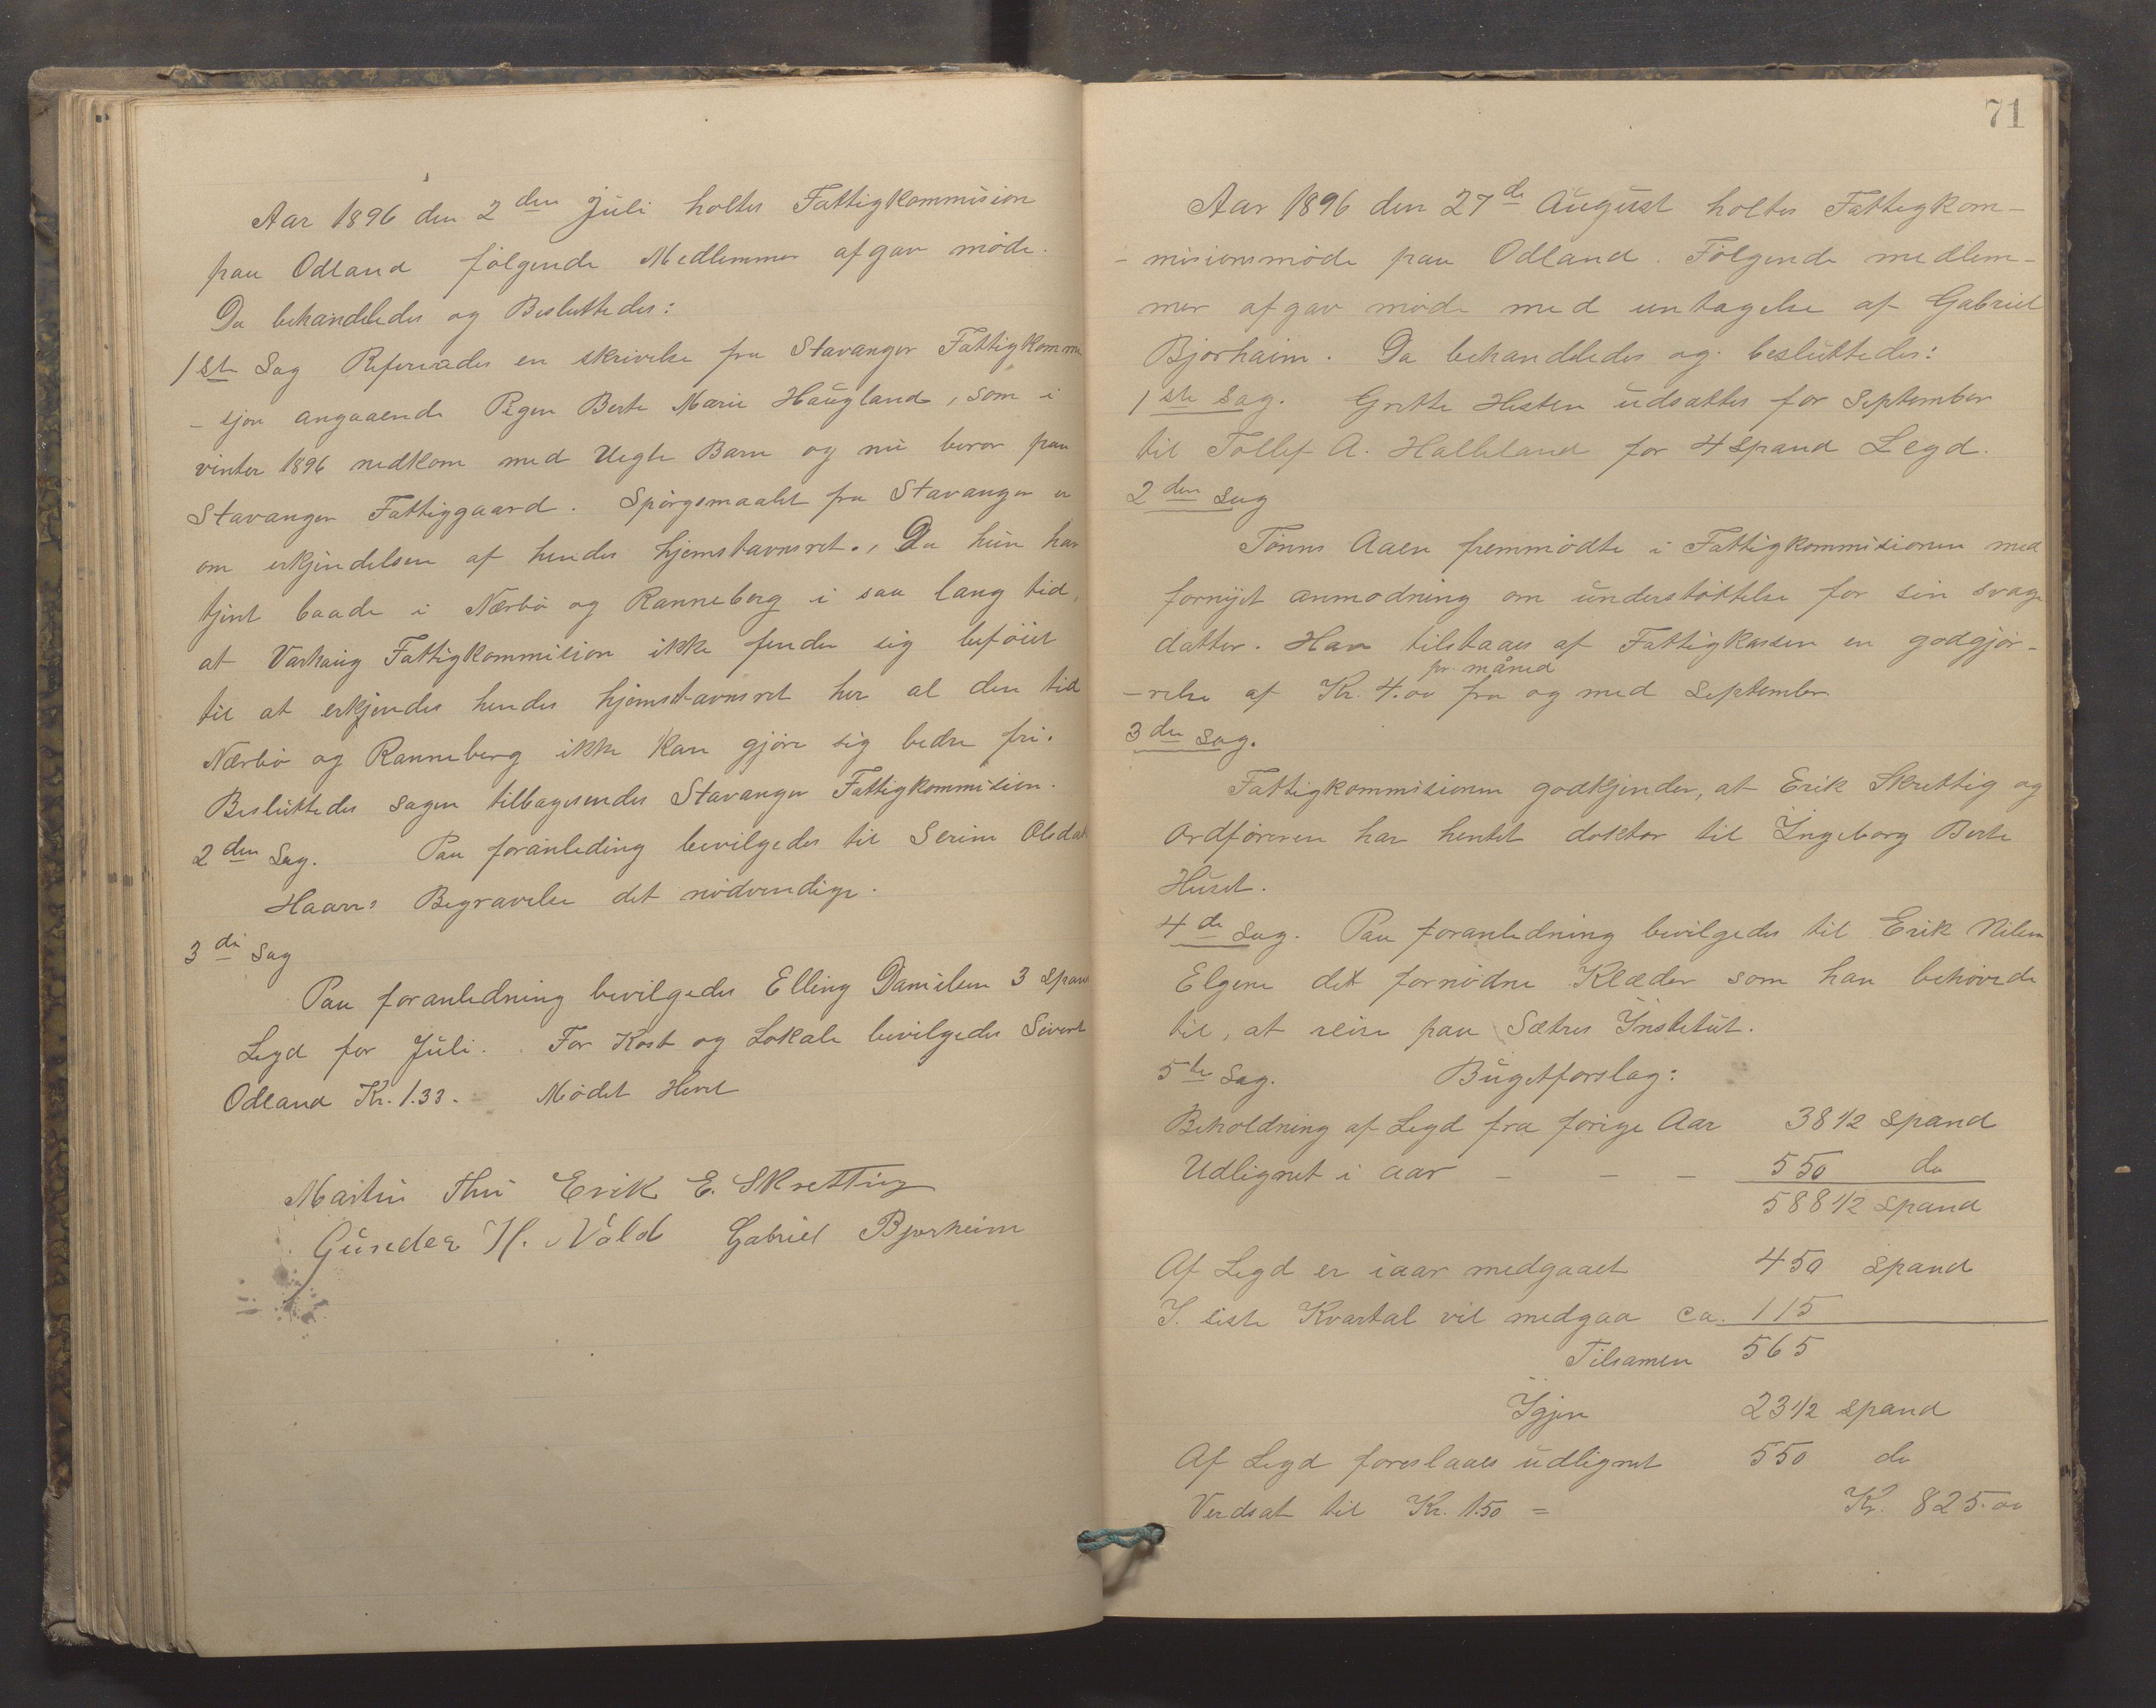 Aar 1896 den 2den Juli holtes Fattigkommision
paa Odland følgende Medlemmer afgav møde.
Da behandledes og Besluttedes:
1ste Sag Refereredes en skrivelse fra Stavanger Fattigkommi
- sjon angaaende Pigen Berte Marie Haugland, som i
vinter 1896 nedkom med Uegte Barn og nu beror paa
Stavanger Fattiggaard. Spørgsmaalet fra Stavanger er
om erkjendelsen af hendes hjemstavnsret., Da hun har
tjent baade i Nærbø og Ranneberg i saa lang tid,
at Varhaug Fattigkommision ikke finder sig beføiet
til at erkjendes hendes hjemstavnsret her al den tid
Nærbø og Ranneberg ikke kan gjøre sig bedre fri.
Besluttedes sagen tilbagesendes Stavanger Fattigkommision.
2den Sag. Paa foranleding bevilgedes til Serine Olsdat
Haars Begravelse det nødvendige.
3di Sag
Paa foranledning bevilgedes Elling Danielsen 3 span
Legd for Juli. For Kost og Lokale bevilgedes Sivert
Odland Kr. 1.33. Mødet Hevet
Martin Thu Erik E. Skretting
Gunder H. Nålå Gabriel Bjorheim
71
Aar 1896 den 27de August holtes Fattigkom-
- misionsmøde paa Odland. Følgende medlem-
mer afgav møde med untagelse af Gabriel
Bjorhaim. Da behandledes og besluttedes:
1ste Sag. Grette Hesten udsættes for September
til Tollef A. Halleland for 4 spand Legd.
2den Sag
Tønns Aaen fremmødte i Fattigkommisionen med
fornyet anmodning om understøttelse for sin svage
datter. Han tilstaaes af Fattigkassen en godgjør-
pr. måned
- relse af Kr. 4.00 fra og med September
3die Sag.
Fattigkommisionen godkjender, at Erik Skrettig og
Ordføreren har hentet doktor til Ingeborg Berte
Huset.
4de Sag. Paa foranledning bevilgedes til Erik Nilsen
Elgene det fornødne Klæder som han behøvede
til, at reise paa Sætres Institut.
5te Sag. Bugetforslag:
Beholdning af Legd fra forige Aar 38 1/2 spand
Udlignet i aar - - - 550 do
588 1/2 spand
Af Legd er iaar medgaaet 450 spand
I. siste Kvartal vil medgaa ca. 115
Tilsamen 565
Igjen 23 1/2 spand
Af Legd foreslaaes udlignet 550 do
Verdsat til Kr. 1.50 = Kr. 825.00